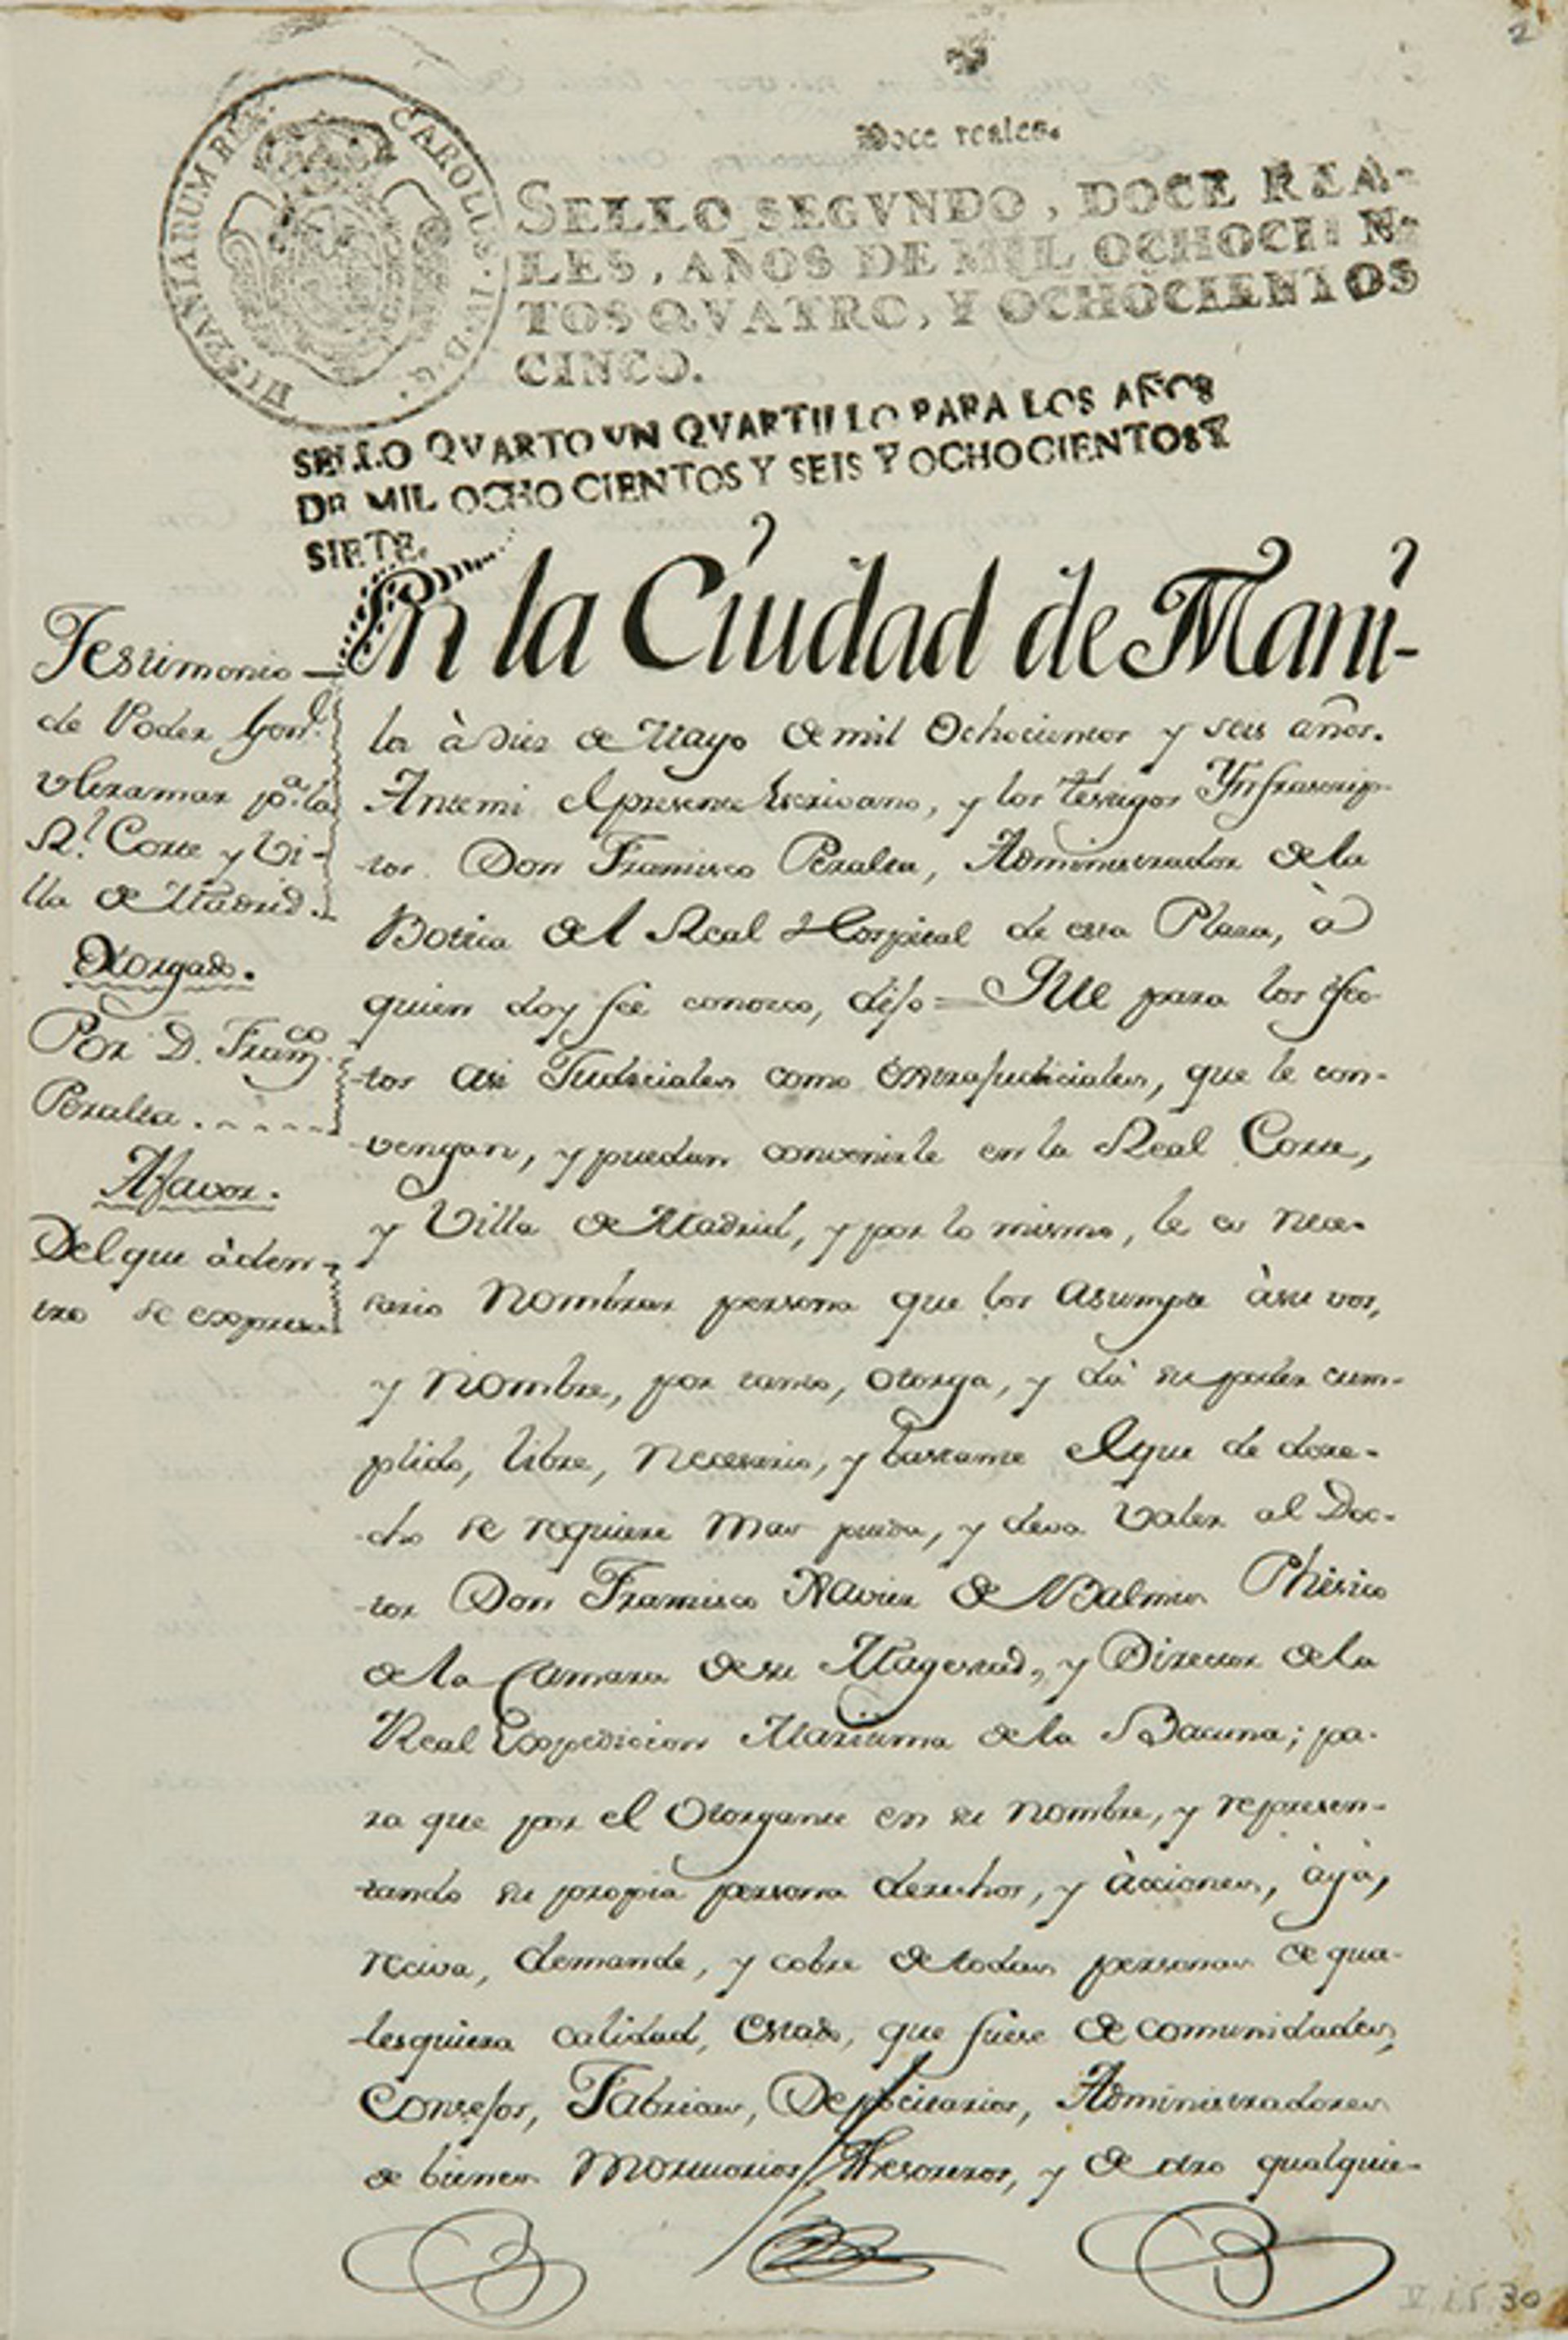 2
Doce reales.
HISPANIARUM REX. CAROLUS. IV. D. G.
SELLO SEGVNDO, DOCE REA-
LES, AÑOS DE MIL OCHOCIEN-
TOS QVATRO, Y OCHOCIENTOS
CINCO.
SELLO QVARTO VN QVARTILLO PARA LOS AÑOS
DE MIL OCHO CIENTOS Y SEIS Y OCHOCIENTOS Y
SIETE.
Testimonio
de Poder Gon̄l
Ultramar pa. la
Rl. Corte y Vi-
lla de Madrid.
Otorgado.
Por D. Franco
Peralta.
Afavor.
Del que àden-
tro se expresa
En la Ciudad de Mani-
la à diez de Mayo de mil Ochocientos y seis años.
Antemi el presente Escrivano, y los testigos Ynfrascrip-
tos Don Francisco Peralta, Administrador de la
Botica del Real Hospital de esta Plaza, à
quien doy feé conosco, dijo = Que para los efec-
tos asi Judiciales como extrajudiciales, que le con-
vengan, y puedan convenirle en la Real Corte,
y Villa de Madrid, y por lo mismo, le es nece-
sario Nombrar persona que los asumpte àsu vos,
y Nombre, por tanto, otorga, y dà su poder cum-
plido, libre, necesario, y bastante el que de dere-
cho se requiere mas pueda, y deva valer al Doc-
tor Don Francisco Xavier de Balmis Phisico
de la Camara de su Magestad, y Director de la
Real Expedicion Maritima de la Bacuna; pa-
ra que por el Otorgante en su nombre, y represen-
tando su propia persona derechos, y àcciones, àyà,
reciva, demande, y cobre de todas personas de qua-
lesquiera calidad, estado, que fuere de comunidades,
Consejos, Fabricas, Depocitarios, Administradores
de bienes Mortuorios Thesoreros, y de otro qualquie-
V.1.5.30